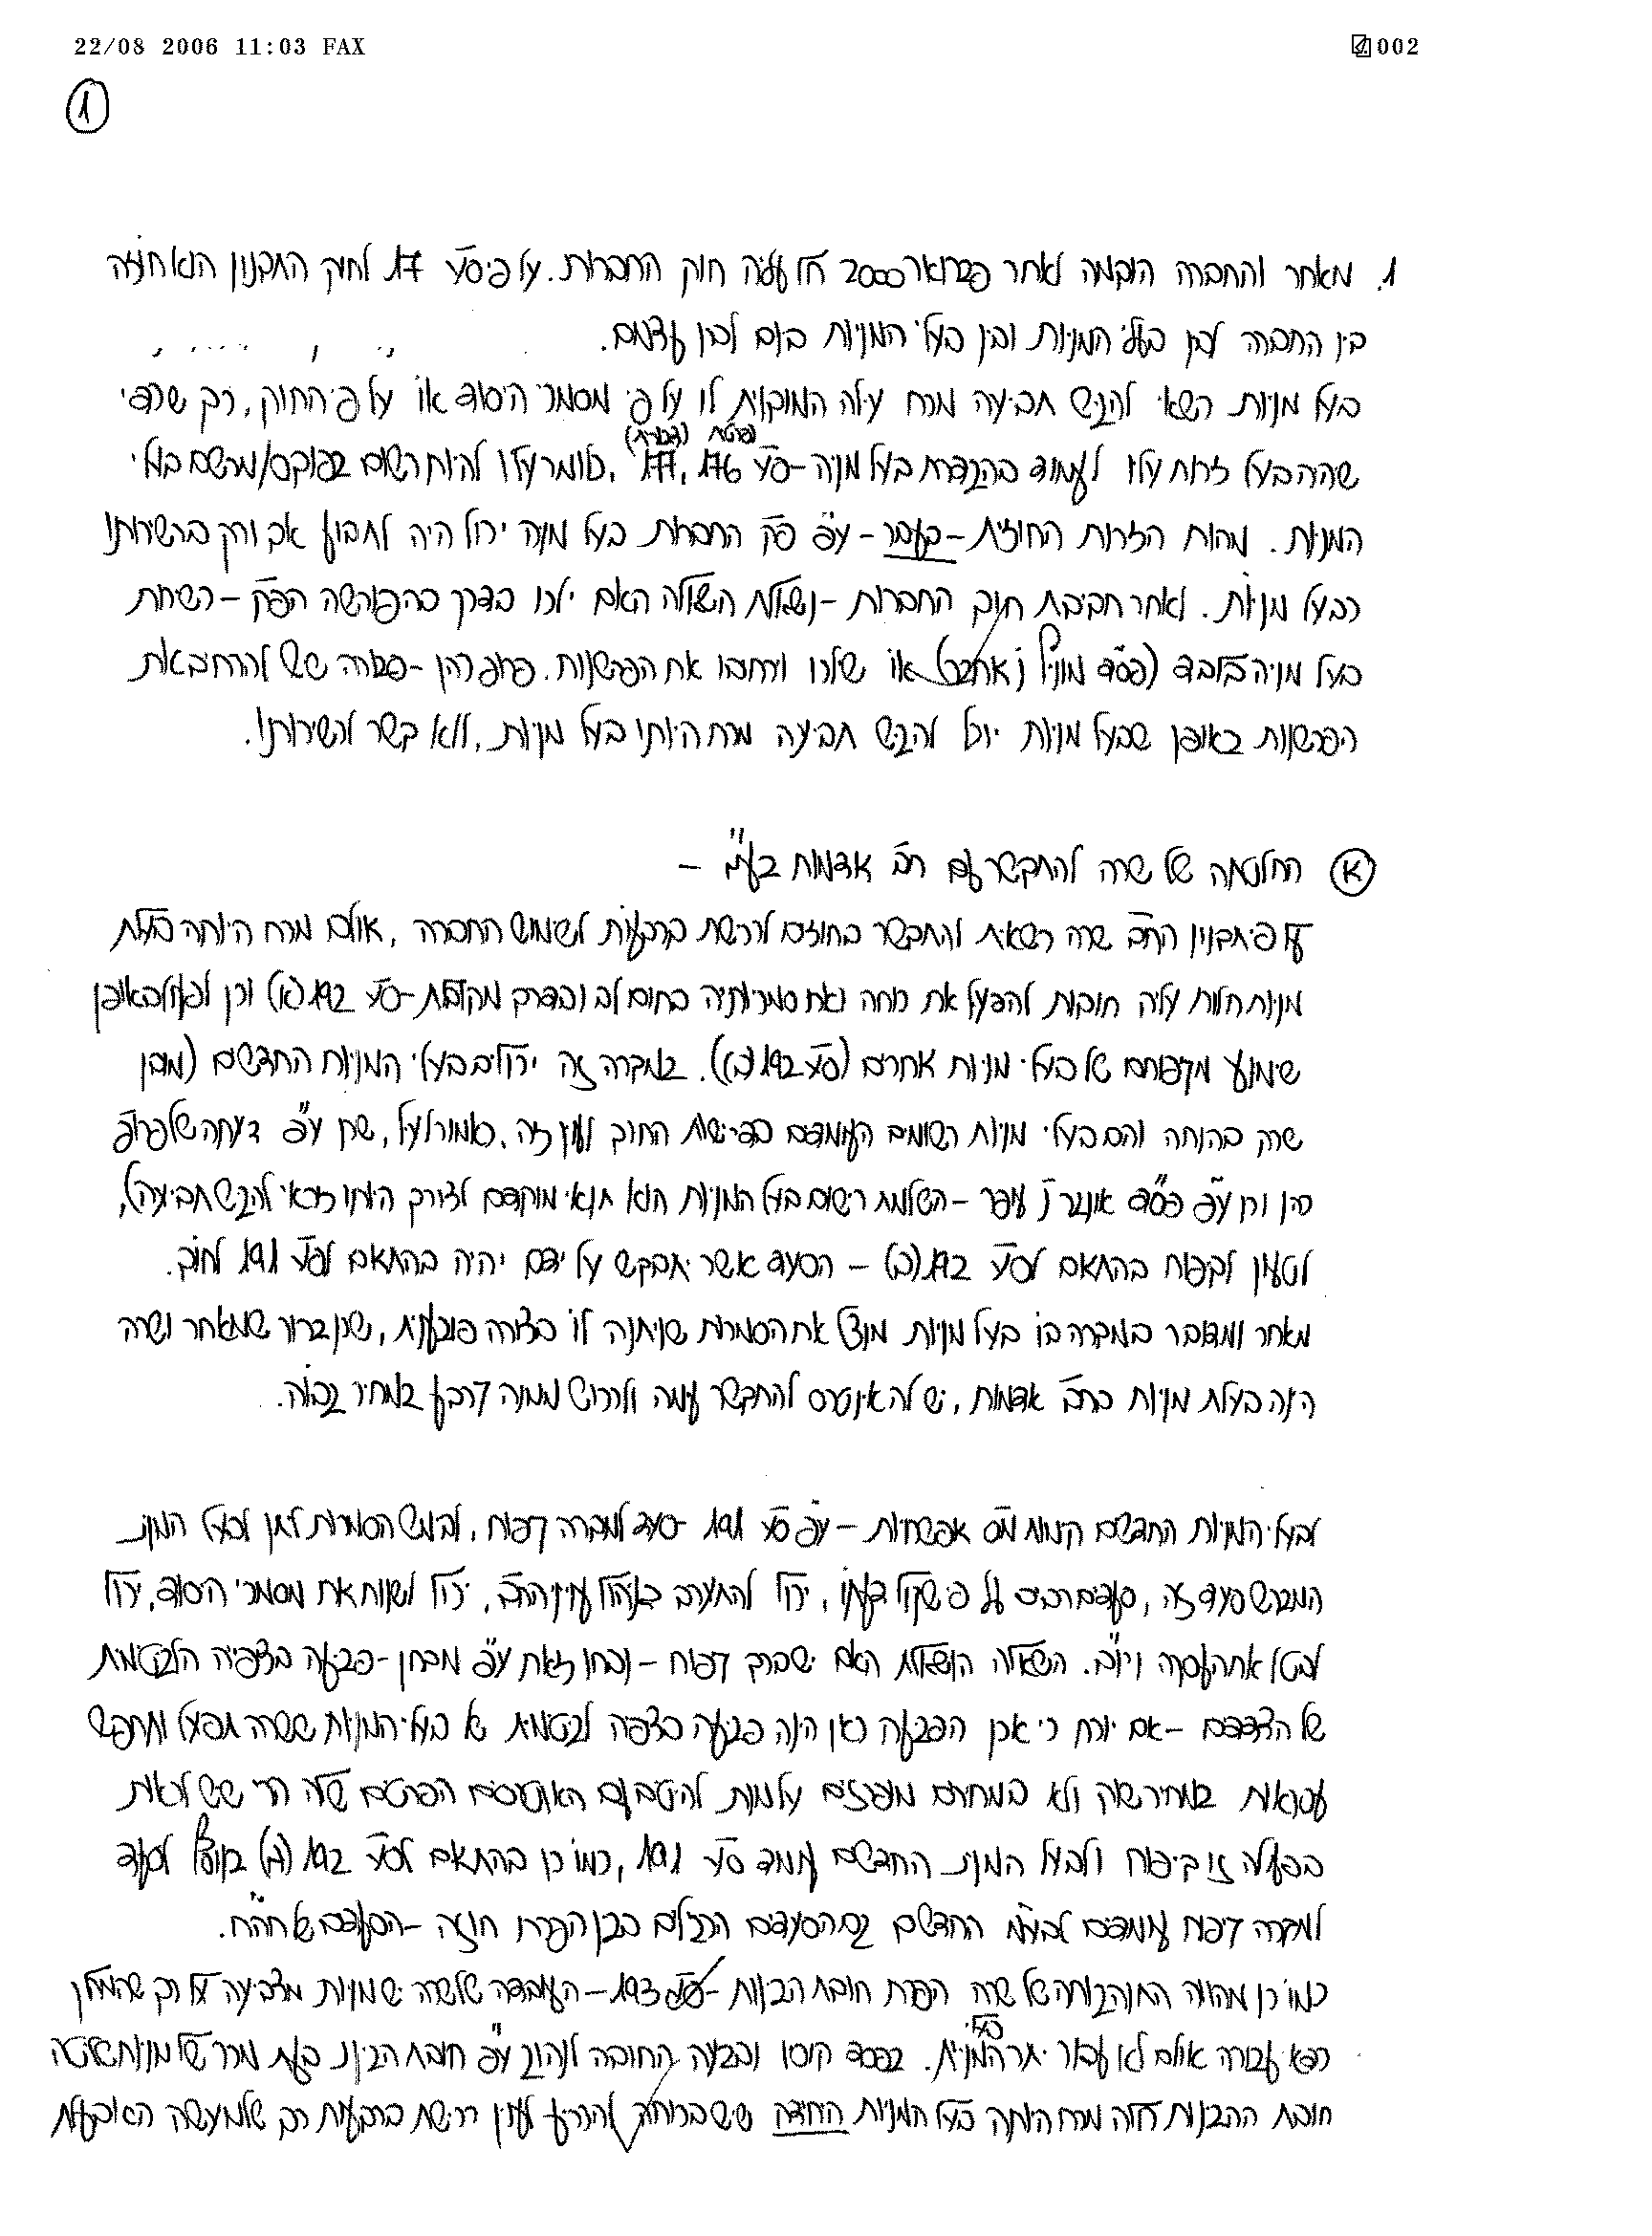 22/08 2006 11:03 FAX 002
1
1. מאחר והחברה הוקמה לאחר פברואר 2000 חל עליה חוק החברות. על פי סע' 17 לחוק התקנון הוא חוזה
בין החברה לבין בעלי המניות ובין בעלי המניות בינם לבין עצמם.
בעל מניות רשאי להגיש תביעה מכח עילה המוקנית לו על פי מסמכי היסוד או על פי החוק, רק שכדי
שיהיה בעל זכות עליו לעמוד בהגדרת בעל מניה - סע' 176, 177, (פרטית) (ציבורית) כלומר עליו להיות רשום במרשם בעלי
המניות. מהות הזכות החוזית - בעבר - עפ"י פק' החברות בעל מניה יכול היה לתבוע אך ורק בהשירותו
כבעל מניות. לאחר חקיקת חוק החברות - נשאלת השאלה האם ילכו בדרך בה פורשה הפק' - כשירות
בעל מניה בלבד (פס"ד או שילכו וירחיבו את הפרשנות. פרופ' כהן - סבורה שיש להרחיב את
הפרשנות באופן שבעל מניות יוכל להגיש תביעה מכח היותו בעל מניות, ללא קשר לכשירותו.
א החלטתה של שרה להתקשר עם חב' אדמות בע"מ -
על פי תקנון החב' שרה רשאית להתקשר בחוזים לרכישת קרקעות לשימוש החברה, אולם מכח היותה בעלת
מניות חלות עליה חובות להפעיל את כוחה ואת סמכויותיה בתום לב ובדרך מקובלת - סע' 192(א) וכן לפעול באופן
שימנע מקפוחם של בעלי מניות אחרים (סע' 192(ב)). במקרה זה יכולים בעלי המניות החדשים (מכיוון
שרק בהנחה והם בעלי מניות רשומים העומדים בדרישות החוק לענין זה, כאמור לעיל, שכן עפ"י דעתה של פרופ'
כהן וכן עפ"י פס"ד אונגר נ' עופר - השלמת רישום בעל המניות הוא תנאי מוקדם לצורך היותו זכאי להגיש תביעה),
לטעון לקפוח בהתאם לסע' 192(ב) - הסעד אשר יתבקש על ידם יהיה בהתאם לסע' 191 לחוק.
מאחר ומדובר במקרה בו בעל מניות מנצל את הסמכות שניתנה לו בצורה פוגענית, שכן ברור שמאחר ושרה
הינה בעלת מניות בחב' אדמות, יש לה אינטרס להתקשר עימה ולרכוש ממנה קרקע במחיר גבוה.
לבעלי המניות החדשים קיימות מס' אפשרויות - עפ"י סע' 191 - סעד למקרה קפוח, לבימ"ש הסמכות ליתן לבעל המניות
המבקש סעד זה, סעדים רבים על פי שיקול דעתו, יכול להתערב בניהול עניין החב', יכול לשנות את מסמכי היסוד, יכול
לבטל את העסקה וכיו"ב. השאלה הנשאלת האם יש בכך קפוח - נבחן זאת עפ"י מבחן - פגיעה בציפיה הלגיטימית
של הצדדים - אם יוכח כי אכן הפגיעה כאן הינה פגיעה בצפיה לגיטימית של בעלי המניות ששרה תפעל ותחפש
עסקאות במחיר שוק ולא במחירים מופרזים על מנת להיטיב עם האינטרסים הפרטיים שלה הרי שיש לראות
בפעולה זו קיפוח ולבעלי המניות החדשים עומד סע' 191, כמו כן בהתאם לסע' 192(ג) בנוסף לסעד
למקרה קיפוח עומדים לבעלי החדשים גם הסעדים הרגילים בגין הפרת חוזה - הסעדים של חה"ח.
כמו כן מהווה התנהגותה של שרה הפרת חובת הגינות - סע' 193 - העובדה שלשרה יש מניות מצביעה על כך שהמחיר
עבורה אולם לא עבור יתר בעלי המניות. בפסד קוסוי נקבעה החובה לנהוג עפ"י חובת הגינות בעת מכר של מניות שליטה
חובת ההגינות חלה מכח היותה בעל המניות היחידה שיש בכוחה להכריע לענין רכישת קרקעות כך שלמעשה היא בעלת